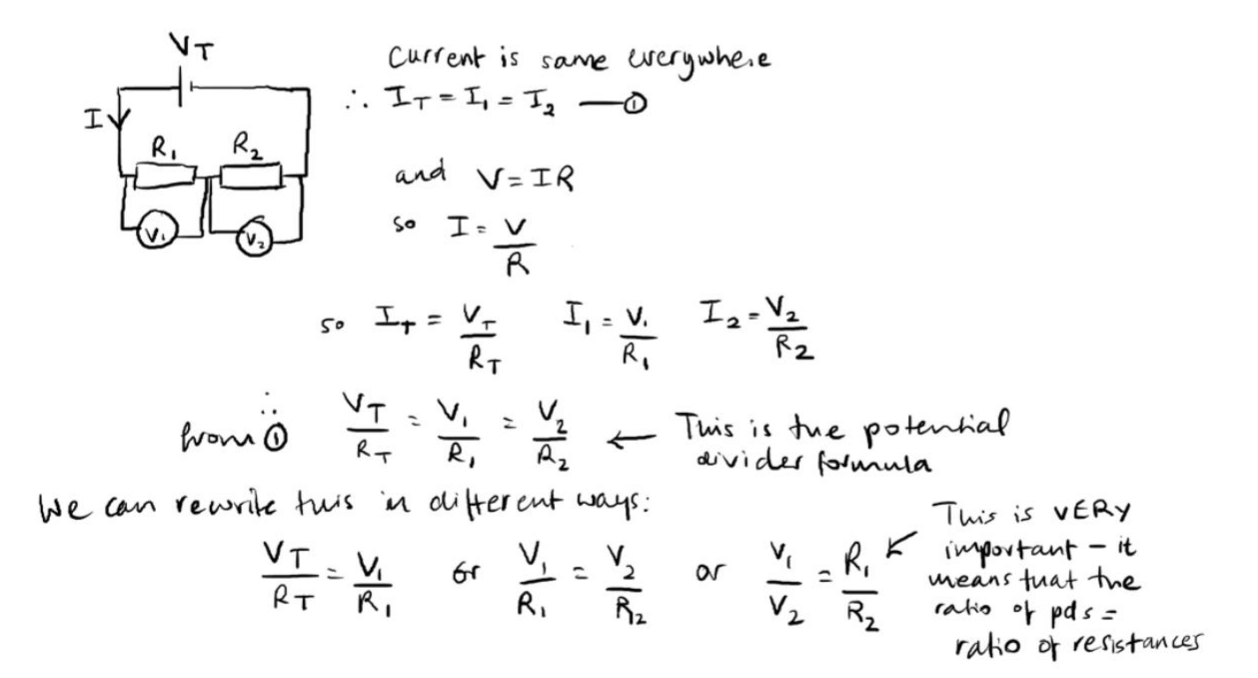 V_T
Current is same everywhere
∴ I_T = I_1 = I_2 —①
I
R_1 R_2
and V = IR
V_1 V_2
so I = V/R
so I_T = V_T/R_T I_1 = V_1/R_1 I_2 = V_2/R_2
∴ from ① V_T/R_T = V_1/R_1 = V_2/R_2 ← This is the potential
divider formula
We can rewrite this in different ways:
V_T/R_T = V_1/R_1 or V_1/R_1 = V_2/R_2 or V_1/V_2 = R_1/R_2
This is VERY
important – it
means that the
ratio of pds =
ratio of resistances